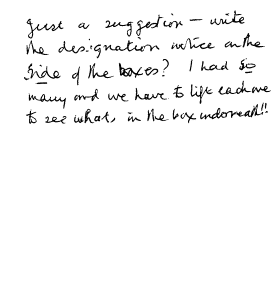 Just a suggestion – write
the designation notice on the
side of the boxes? I had so
many and we have to lift each one
to see what's in the box underneath!!